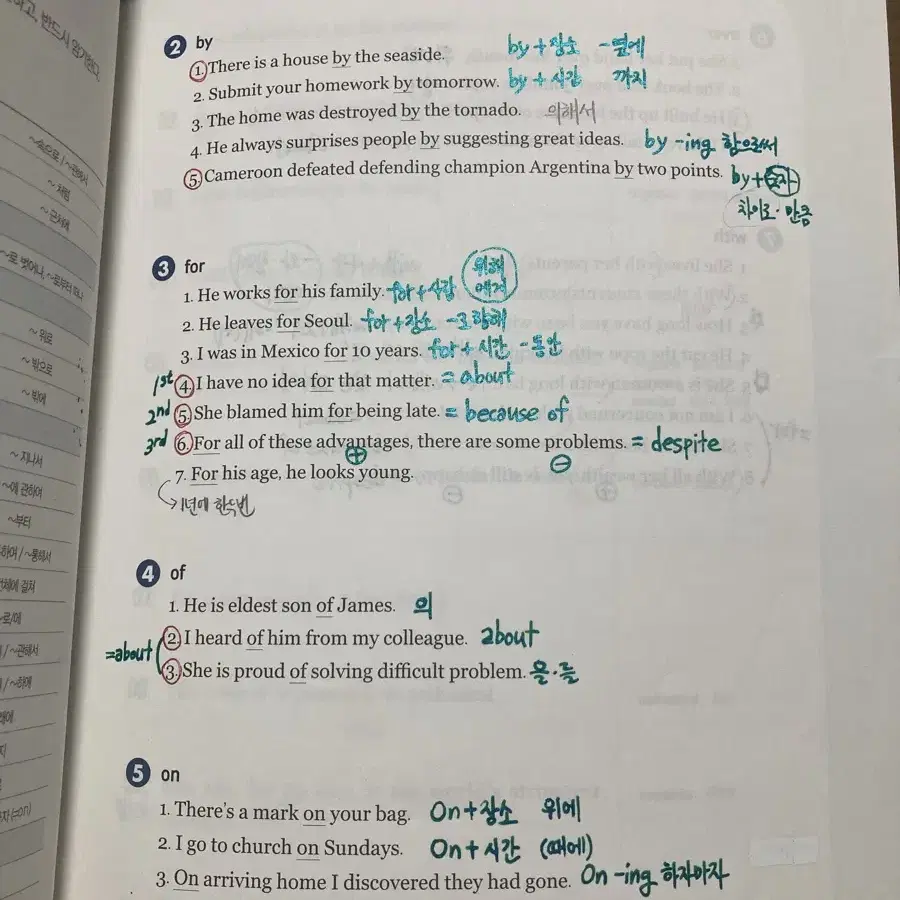 하고, 반드시 암기한다.
~처럼
~근처에
~위로
~밖으로
~밖에
~지나서
~에 관하여
~부터
2 by
1. There is a house by the seaside. by+장소 -옆에
2. Submit your homework by tomorrow. by+시간 까지
3. The home was destroyed by the tornado. 의해서
4. He always surprises people by suggesting great ideas. by -ing 함으로써
5. Cameroon defeated defending champion Argentina by two points. by+숫자
차이로·만큼
3 for
위해
1. He works for his family. for+사람 에게
2. He leaves for Seoul. for+장소 -로 향해
3. I was in Mexico for 10 years. for+시간 -동안
1st 4. I have no idea for that matter. = about
2nd 5. She blamed him for being late. = because of
3rd 6. For all of these advantages, there are some problems. = despite
⊕ ⊖
7. For his age, he looks young.
→1년에 한두번
4 of
1. He is eldest son of James. 의
2. I heard of him from my colleague. about
=about
3. She is proud of solving difficult problem. 을·를
5 on
1. There's a mark on your bag. On+장소 위에
2. I go to church on Sundays. On+시간 (때에)
3. On arriving home I discovered they had gone. On -ing 하자마자